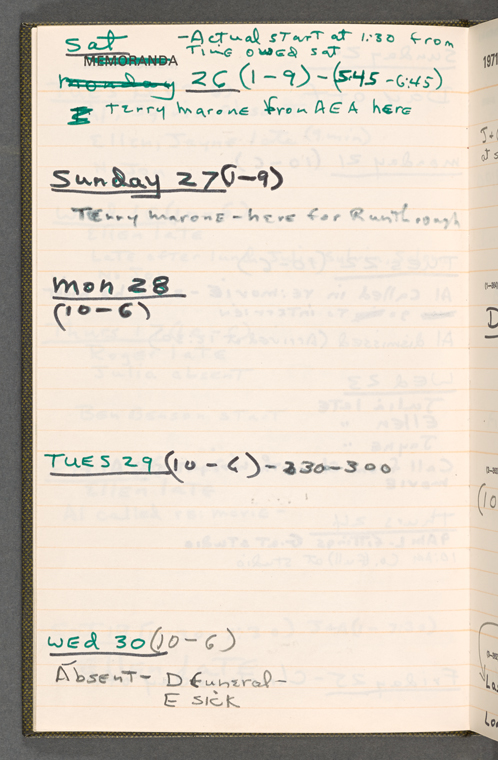 Sat - Actual start at 1:30 from
Time owed sat
MEMORANDA
Monday 26 (1-9) - (5:45 - 6:45)
Terry Marone from AEA here
Sunday 27 (1-9)
Terry Marone - here for Runthrough
Mon 28
(10-6)
TUES 29 (10-6) - 230-300
Wed 30 (10-6)
Absent - D Funeral -
E sick
1971